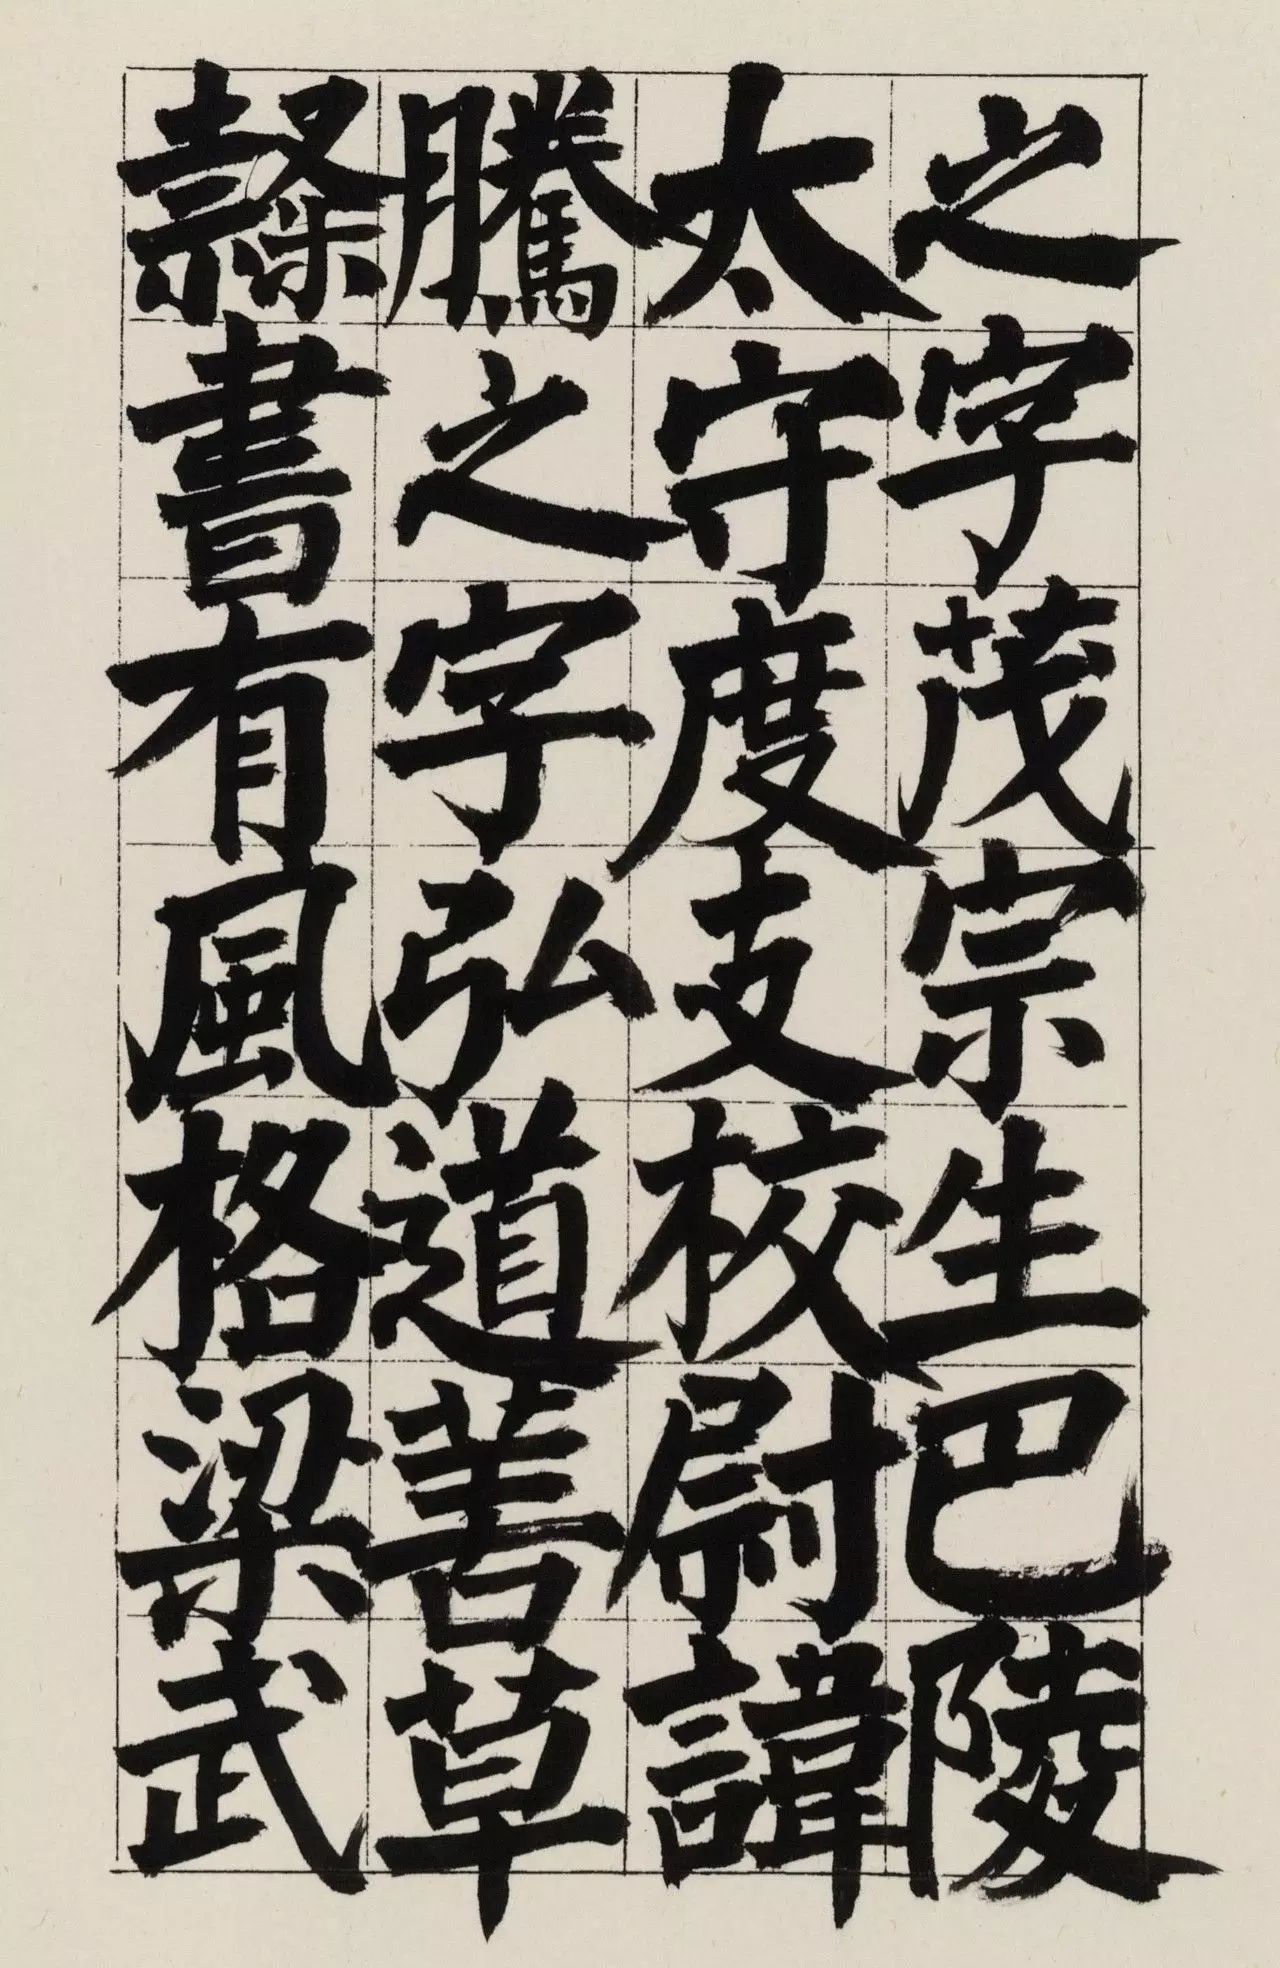 之字茂宗生巴陵
太守度支校尉諱
騰之字弘道善草
隷書有風格梁武